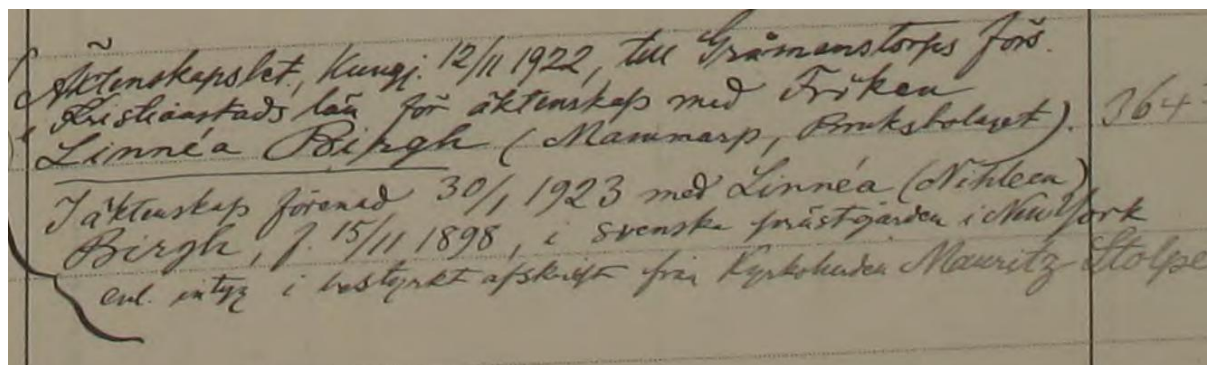 Äktenskapsbet., Kungj. 12/11 1922, till Gråmanstorps förs.
i Kristianstads län för äktenskap med Fröken
Linnéa Birgh (Mammarp, Bruksbolaget). 364
I äktenskap förenad 30/1 1923 med Linnéa (Nihleen)
Birgh, f. 15/11 1898, i svenska prästgården i New York
enl. intyg i bestyrkt afskrift från Kyrkoherden Mauritz Stolpe